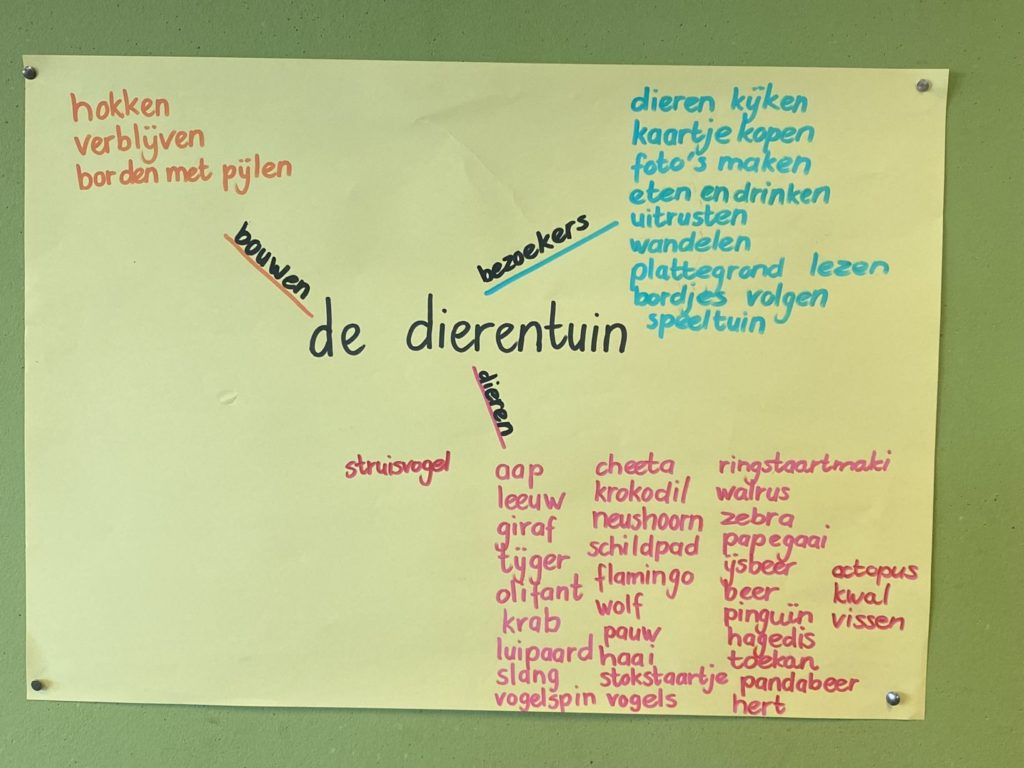 hokken
verblijven
borden met pijlen
dieren kijken
kaartje kopen
foto's maken
eten en drinken
uitrusten
wandelen
plattegrond lezen
bordjes volgen
speeltuin
bouwen
bezoekers
de dierentuin
dieren
struisvogel
aap
leeuw
giraf
tijger
olifant
krab
luipaard
slang
vogelspin
cheeta
krokodil
neushoorn
schildpad
flamingo
wolf
pauw
haai
stokstaartje
vogels
ringstaartmaki
walrus
zebra
papegaai
ijsbeer
beer
pinguïn
hagedis
toekan
pandabeer
hert
octopus
kwal
vissen